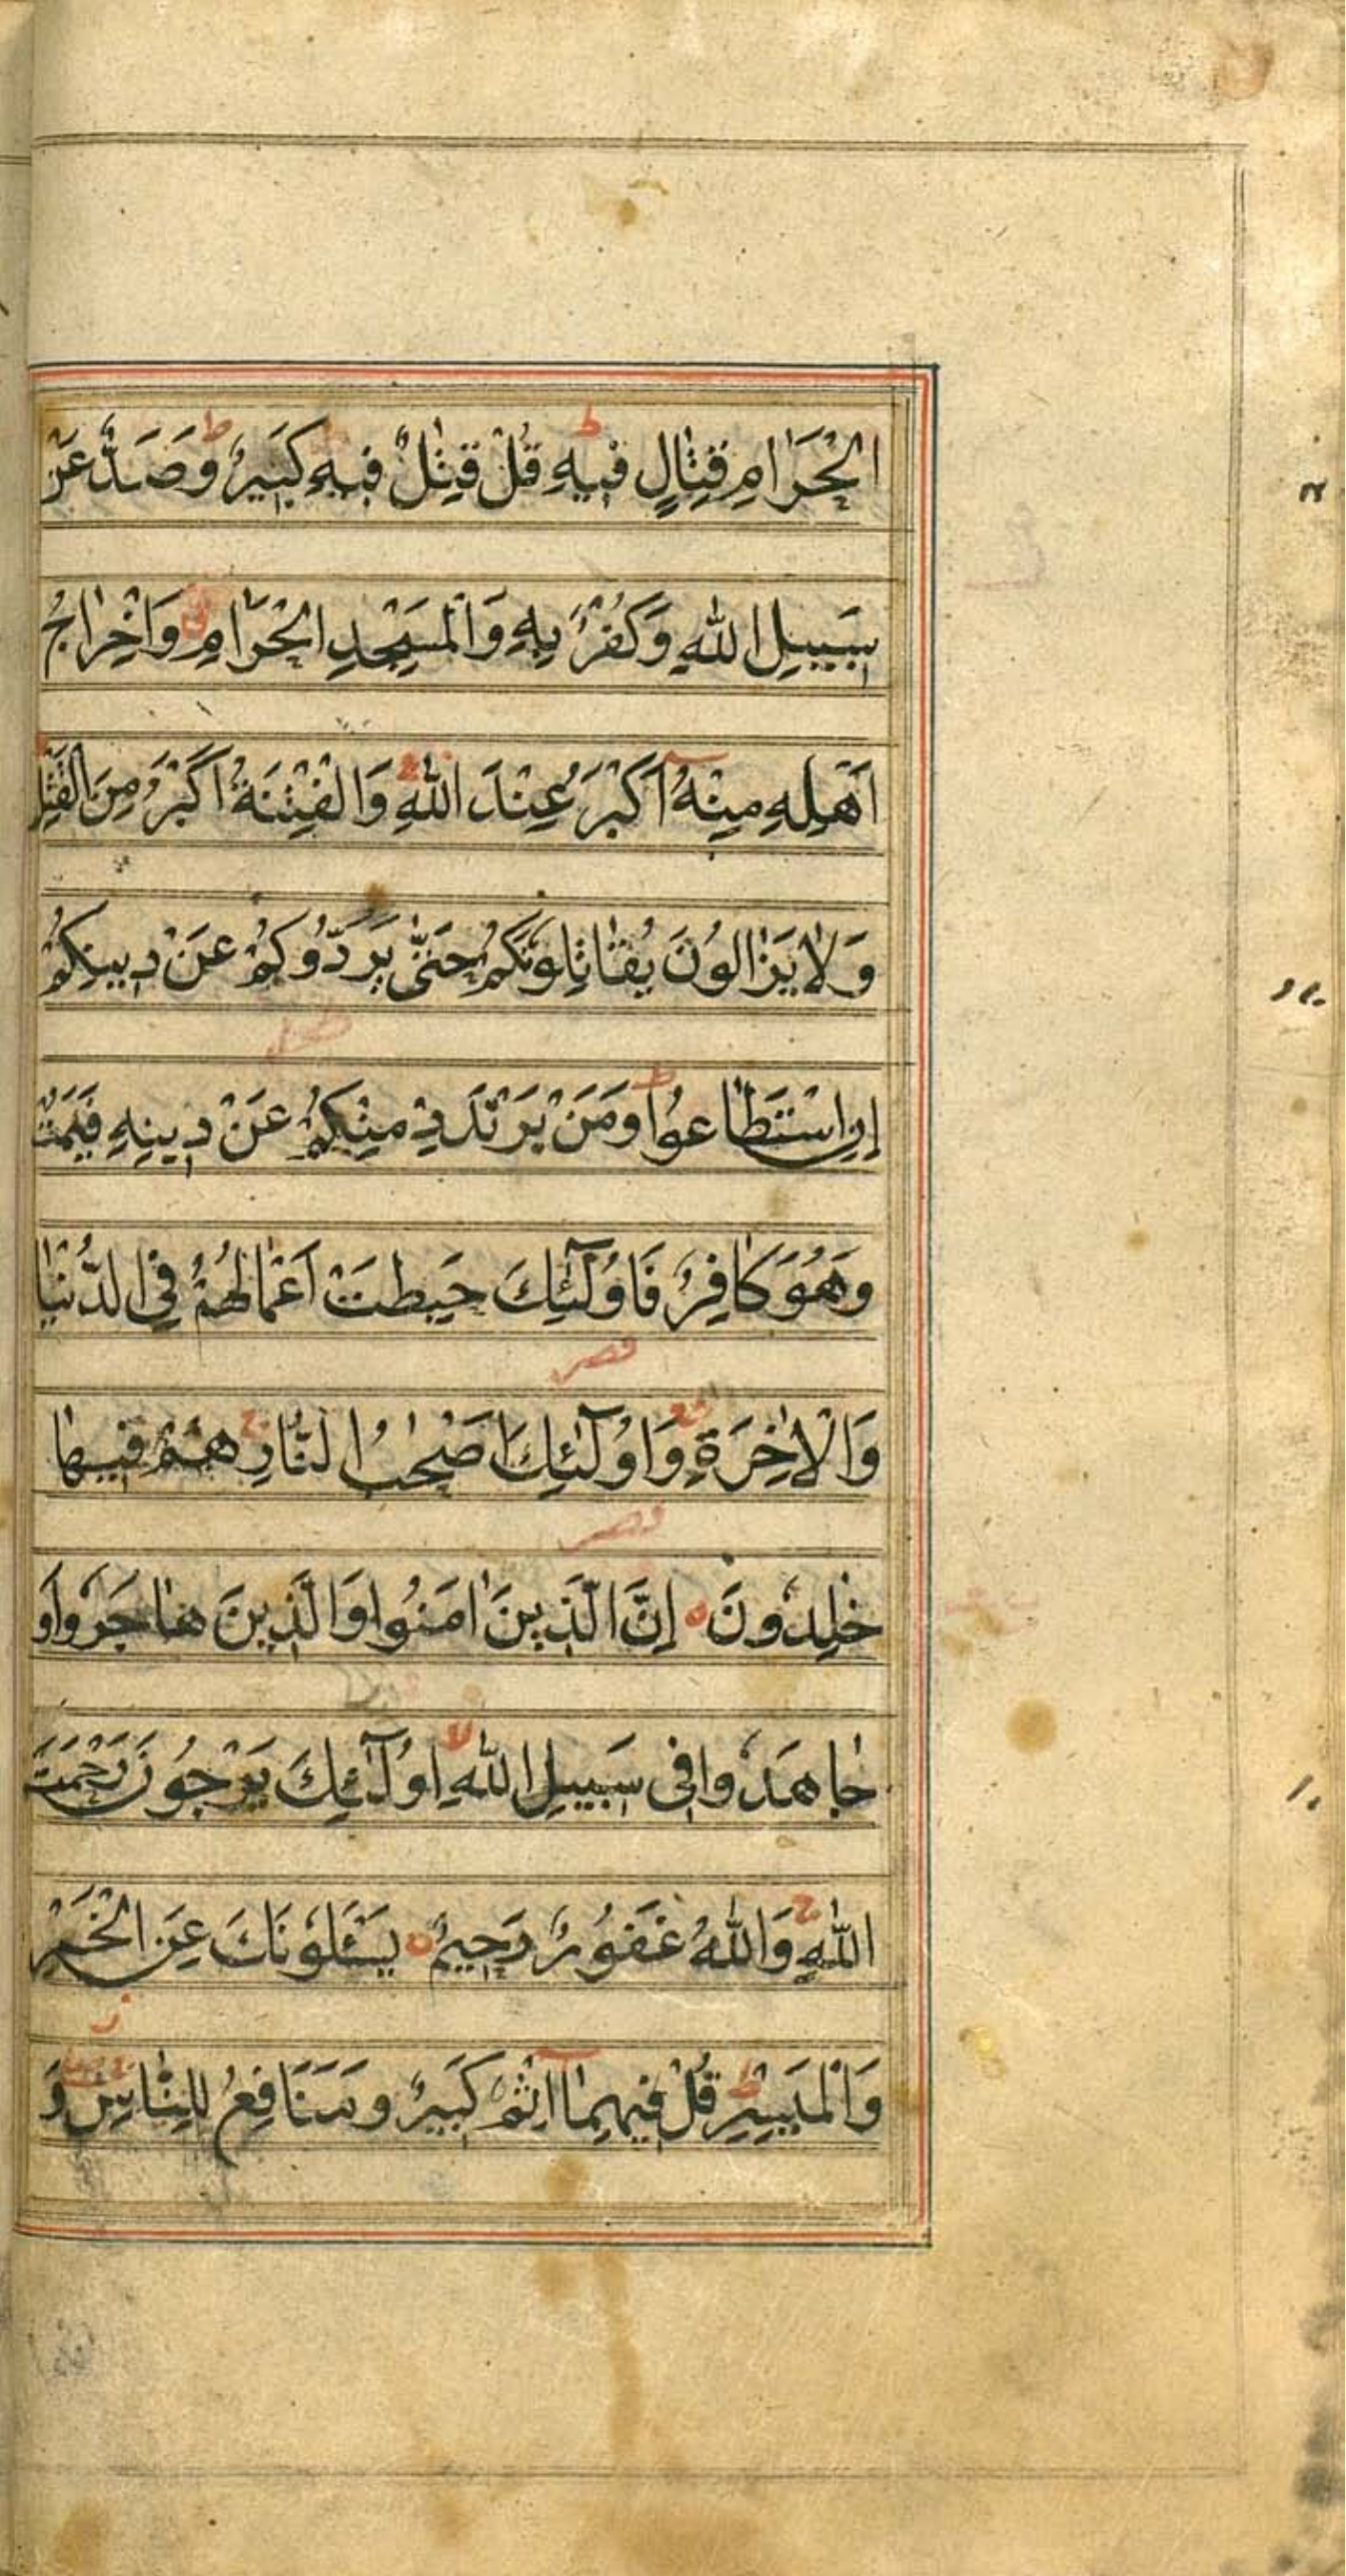 الْحَرَامِ قِتَالٍ فِيهِ ط قُلْ قِتٰلٌ فِيهِ كَبِيرٌ ط وَصَدٌّ عَنْ
سَبِيلِ اللّٰهِ وَكُفْرٌ بِهِ وَالْمَسْجِدِ الْحَرَامِ وَاِخْرَاجُ
اَهْلِهِ مِنْهُ اَكْبَرُ عِنْدَ اللّٰهِ وَالْفِتْنَةُ اَكْبَرُ مِنَ الْقَتْلِ
وَلَا يَزَالُونَ يُقَاتِلُونَكُمْ حَتّٰى يَرُدُّوكُمْ عَنْ دِينِكُمْ
اِنِ اسْتَطَاعُوا ط وَمَنْ يَرْتَدِدْ مِنْكُمْ عَنْ دِينِهِ فَيَمُتْ
وَهُوَ كَافِرٌ فَاُولٰٓئِكَ حَبِطَتْ اَعْمَالُهُمْ فِي الدُّنْيَا
وَالْاٰخِرَةِ وَاُولٰٓئِكَ اَصْحٰبُ النَّارِ ج هُمْ فِيهَا
خٰلِدُونَ ه اِنَّ الَّذِينَ اٰمَنُوا وَالَّذِينَ هَاجَرُوا وَ
جَاهَدُوا فِى سَبِيلِ اللّٰهِ لا اُولٰٓئِكَ يَرْجُونَ رَحْمَتَ
اللّٰهِ ج وَاللّٰهُ غَفُورٌ رَحِيمٌ ه يَسْـَٔلُونَكَ عَنِ الْخَمْرِ
وَالْمَيْسِرِ ط قُلْ فِيهِمَا اِثْمٌ كَبِيرٌ وَمَنَافِعُ لِلنَّاسِ وَ